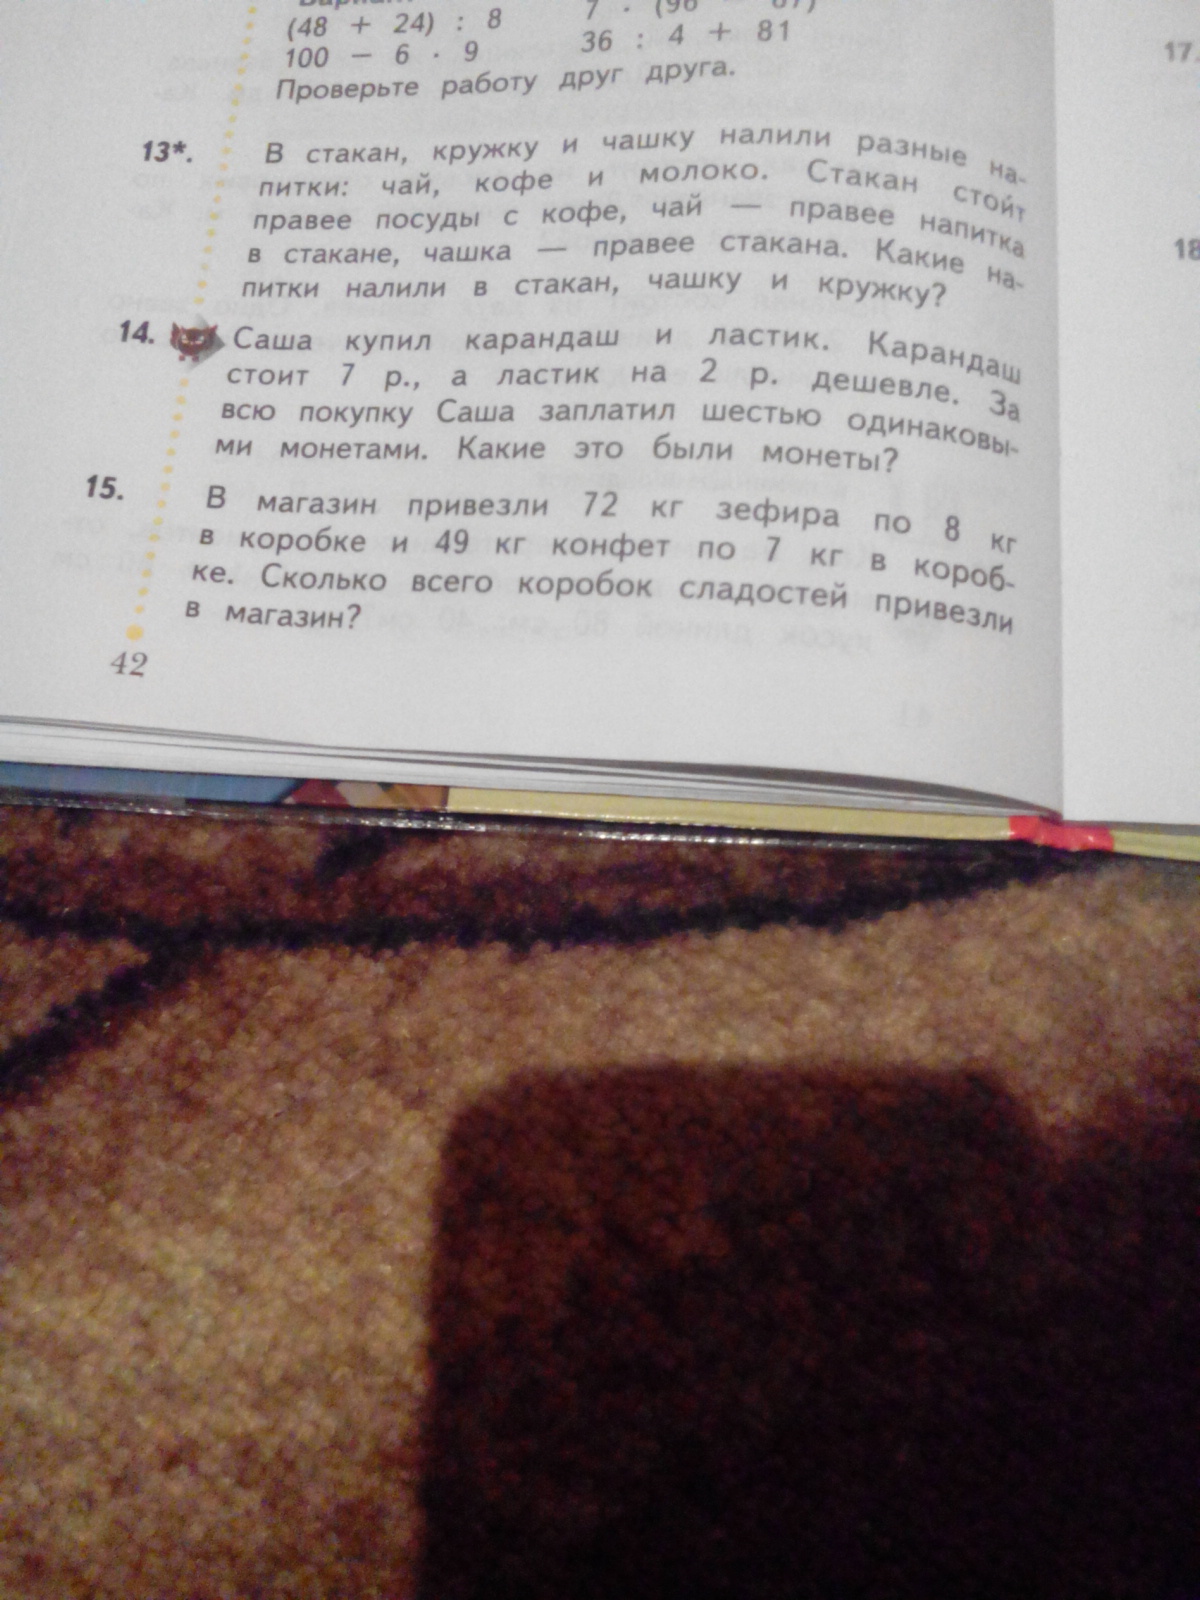 (48 + 24) : 8
100 − 6 · 9
36 : 4 + 81
Проверьте работу друг друга.
13*. В стакан, кружку и чашку налили разные на-
питки: чай, кофе и молоко. Стакан стоит
правее посуды с кофе, чай — правее напитка
в стакане, чашка — правее стакана. Какие на-
питки налили в стакан, чашку и кружку?
14. Саша купил карандаш и ластик. Карандаш
стоит 7 р., а ластик на 2 р. дешевле. За
всю покупку Саша заплатил шестью одинаковы-
ми монетами. Какие это были монеты?
15. В магазин привезли 72 кг зефира по 8 кг
в коробке и 49 кг конфет по 7 кг в короб-
ке. Сколько всего коробок сладостей привезли
в магазин?
42
17.
18